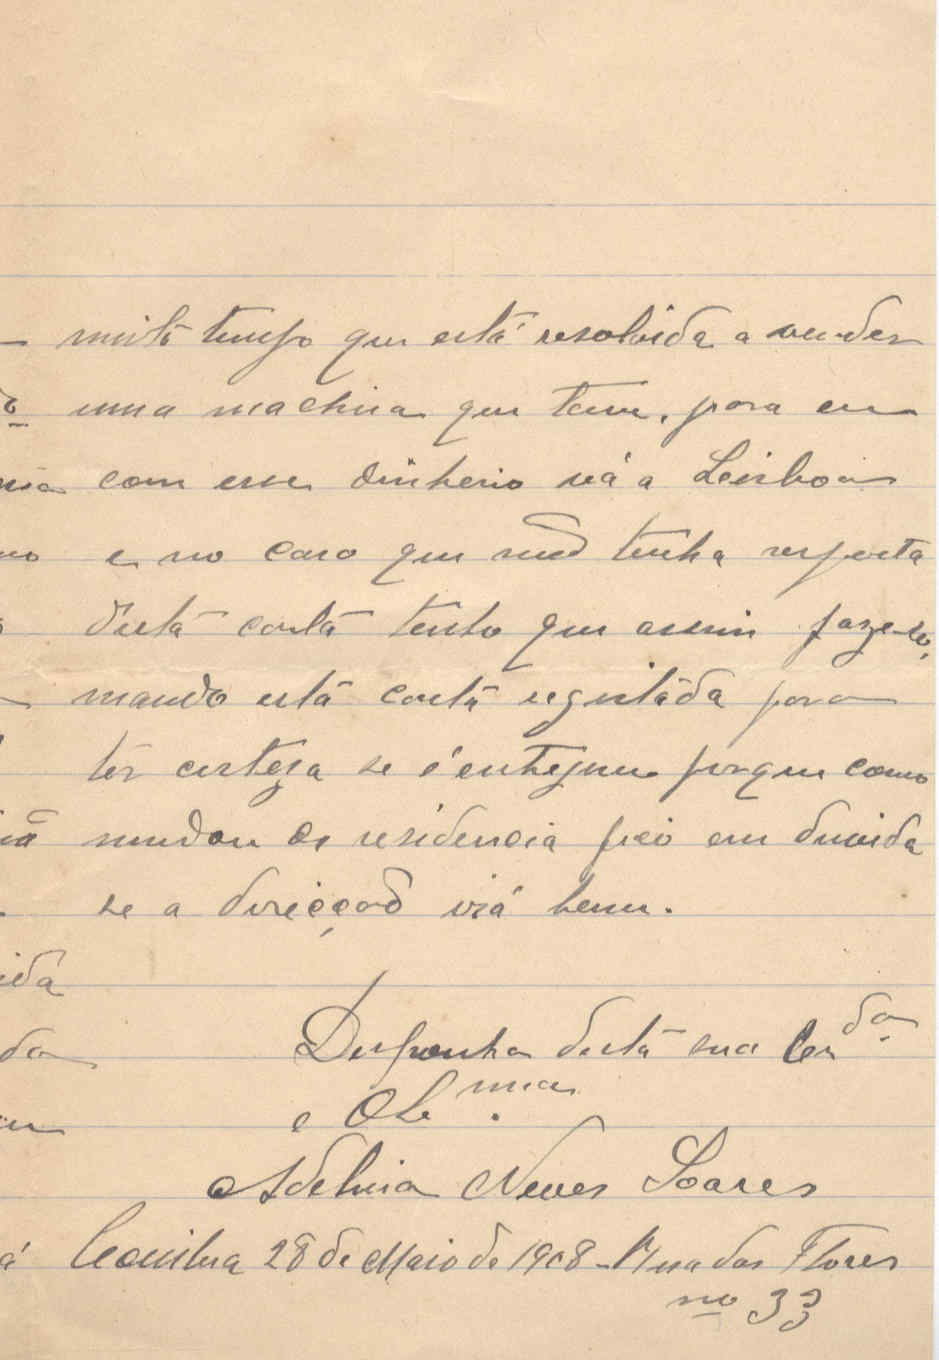 muito tempo que está resolvida a vender
uma machina que tem, para eu
com esse dinheiro vá a Lisboa
e no caso que não tenha resposta
desta carta tenho que assim faze-lo,
mando esta carta registada para
ter certeza se é entregue porque como
mudou de residencia fico em duvida
se a direcção irá bem.
ida
da
Desponha desta sua Cr.da
e Ob.ma
Adelina Neves Soares
á Coimbra 28 de Maio de 1908 - Rua das Flores
no 33